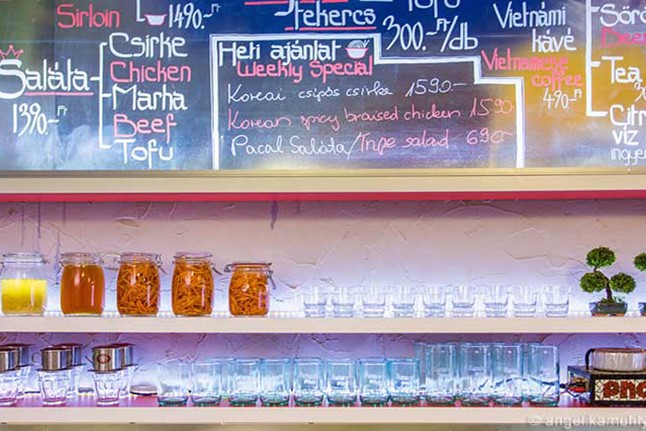 Sirloin
1490.-Ft
Saláta
1390.-Ft
Csirke
Chicken
Marha
Beef
Tofu
tekercs
Tofu
300.-Ft/db
Heti ajánlat
Weekly Special
Koreai csípős csirke 1590.-
Korean spicy braised chicken 1590
Pacal Saláta/Tripe salad 690.-
Vietnámi
kávé
Vietnamese
coffee
490.-Ft
Sörö
Beer
Tea
Citr
víz
ingye
angel.kamuhly